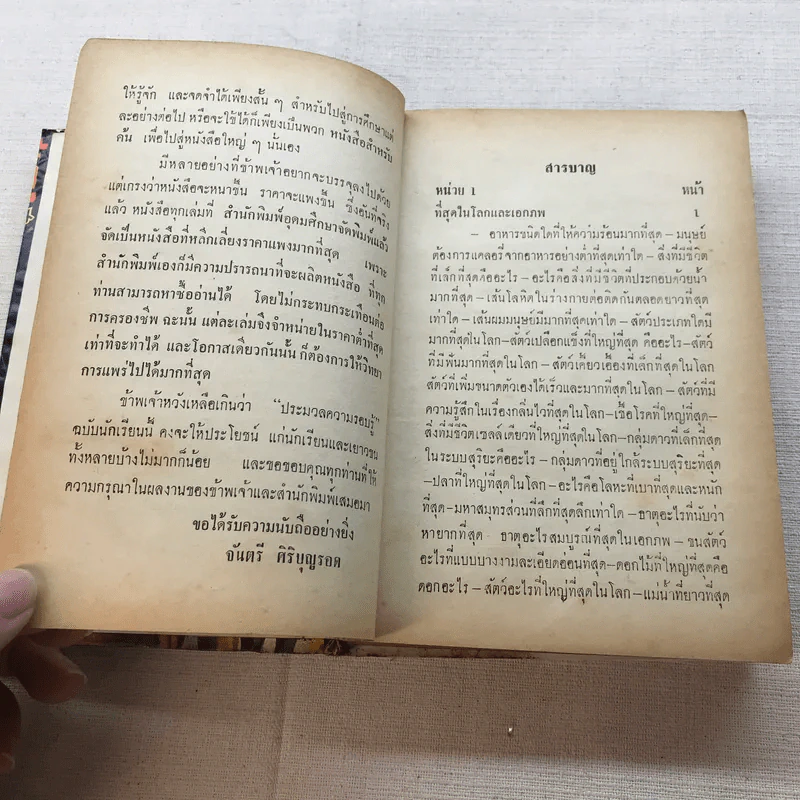 ให้รู้จัก และจดจำได้เพียงสั้น ๆ สำหรับไปสู่การศึกษาแต่
ละอย่างต่อไป หรือจะใช้ได้ก็เพียงเป็นพวก หนังสือสำหรับ
ค้น เพื่อไปสู่หนังสือใหญ่ ๆ นั้นเอง
มีหลายอย่างที่ข้าพเจ้าอยากจะบรรจุลงไปด้วย
แต่เกรงว่าหนังสือจะหนาขึ้น ราคาจะแพงขึ้น ซึ่งอันที่จริง
แล้ว หนังสือทุกเล่มที่ สำนักพิมพ์อุดมศึกษาจัดพิมพ์แล้ว
จัดเป็นหนังสือที่หลีกเลี่ยงราคาแพงมากที่สุด เพราะ
สำนักพิมพ์เองก็มีความปรารถนาที่จะผลิตหนังสือ ที่ทุก
ท่านสามารถหาซื้ออ่านได้ โดยไม่กระทบกระเทือนต่อ
การครองชีพ ฉะนั้น แต่ละเล่มจึงจำหน่ายในราคาต่ำที่สุด
เท่าที่จะทำได้ และโอกาสเดียวกันนั้น ก็ต้องการให้วิทยา
การแพร่ไปได้มากที่สุด
ข้าพเจ้าหวังเหลือเกินว่า “ประมวลความรอบรู้”
ฉบับนักเรียนนี้ คงจะให้ประโยชน์ แก่นักเรียนและเยาวชน
ทั้งหลายบ้างไม่มากก็น้อย และขอขอบคุณทุกท่านที่ให้
ความกรุณาในผลงานของข้าพเจ้าและสำนักพิมพ์เสมอมา
ขอได้รับความนับถืออย่างยิ่ง
จันตรี ศิริบุญรอด
สารบาญ
หน่วย 1 หน้า
ที่สุดในโลกและเอกภพ 1
– อาหารชนิดใดที่ให้ความร้อนมากที่สุด – มนุษย์
ต้องการแคลอรี่จากอาหารอย่างต่ำที่สุดเท่าใด – สิ่งที่มีชีวิต
ที่เล็กที่สุดคืออะไร – อะไรคือสิ่งที่มีชีวิตที่ประกอบด้วยน้ำ
มากที่สุด – เส้นโลหิตในร่างกายต่อติดกันตลอดยาวที่สุด
เท่าใด – เส้นผมมนุษย์มีมากที่สุดเท่าใด – สัตว์ประเภทใดมี
มากที่สุดในโลก – สัตว์เปลือกแข็งที่ใหญ่ที่สุด คืออะไร – สัตว์
ที่มีฟันมากที่สุดในโลก – สัตว์เคี้ยวเอื้องที่เล็กที่สุดในโลก
สัตว์ที่เพิ่มขนาดตัวเองได้เร็วและมากที่สุดในโลก – สัตว์ที่มี
ความรู้สึกในเรื่องกลิ่นไวที่สุดในโลก – เชื้อโรคที่ใหญ่ที่สุด –
สิ่งที่มีชีวิตเซลล์เดียวที่ใหญ่ที่สุดในโลก – กลุ่มดาวที่เล็กที่สุด
ในระบบสุริยะคืออะไร – กลุ่มดาวที่อยู่ใกล้ระบบสุริยะที่สุด
– ปลาที่ใหญ่ที่สุดในโลก – อะไรคือโลหะที่เบาที่สุดและหนัก
ที่สุด – มหาสมุทรส่วนที่ลึกที่สุดลึกเท่าใด – ธาตุอะไรที่นับว่า
หายากที่สุด – ธาตุอะไรสมบูรณ์ที่สุดในเอกภพ – ขนสัตว์
อะไรที่แบบบางงามละเอียดอ่อนที่สุด – ดอกไม้ที่ใหญ่ที่สุดคือ
ดอกอะไร – สัตว์อะไรที่ใหญ่ที่สุดในโลก – แม่น้ำที่ยาวที่สุด